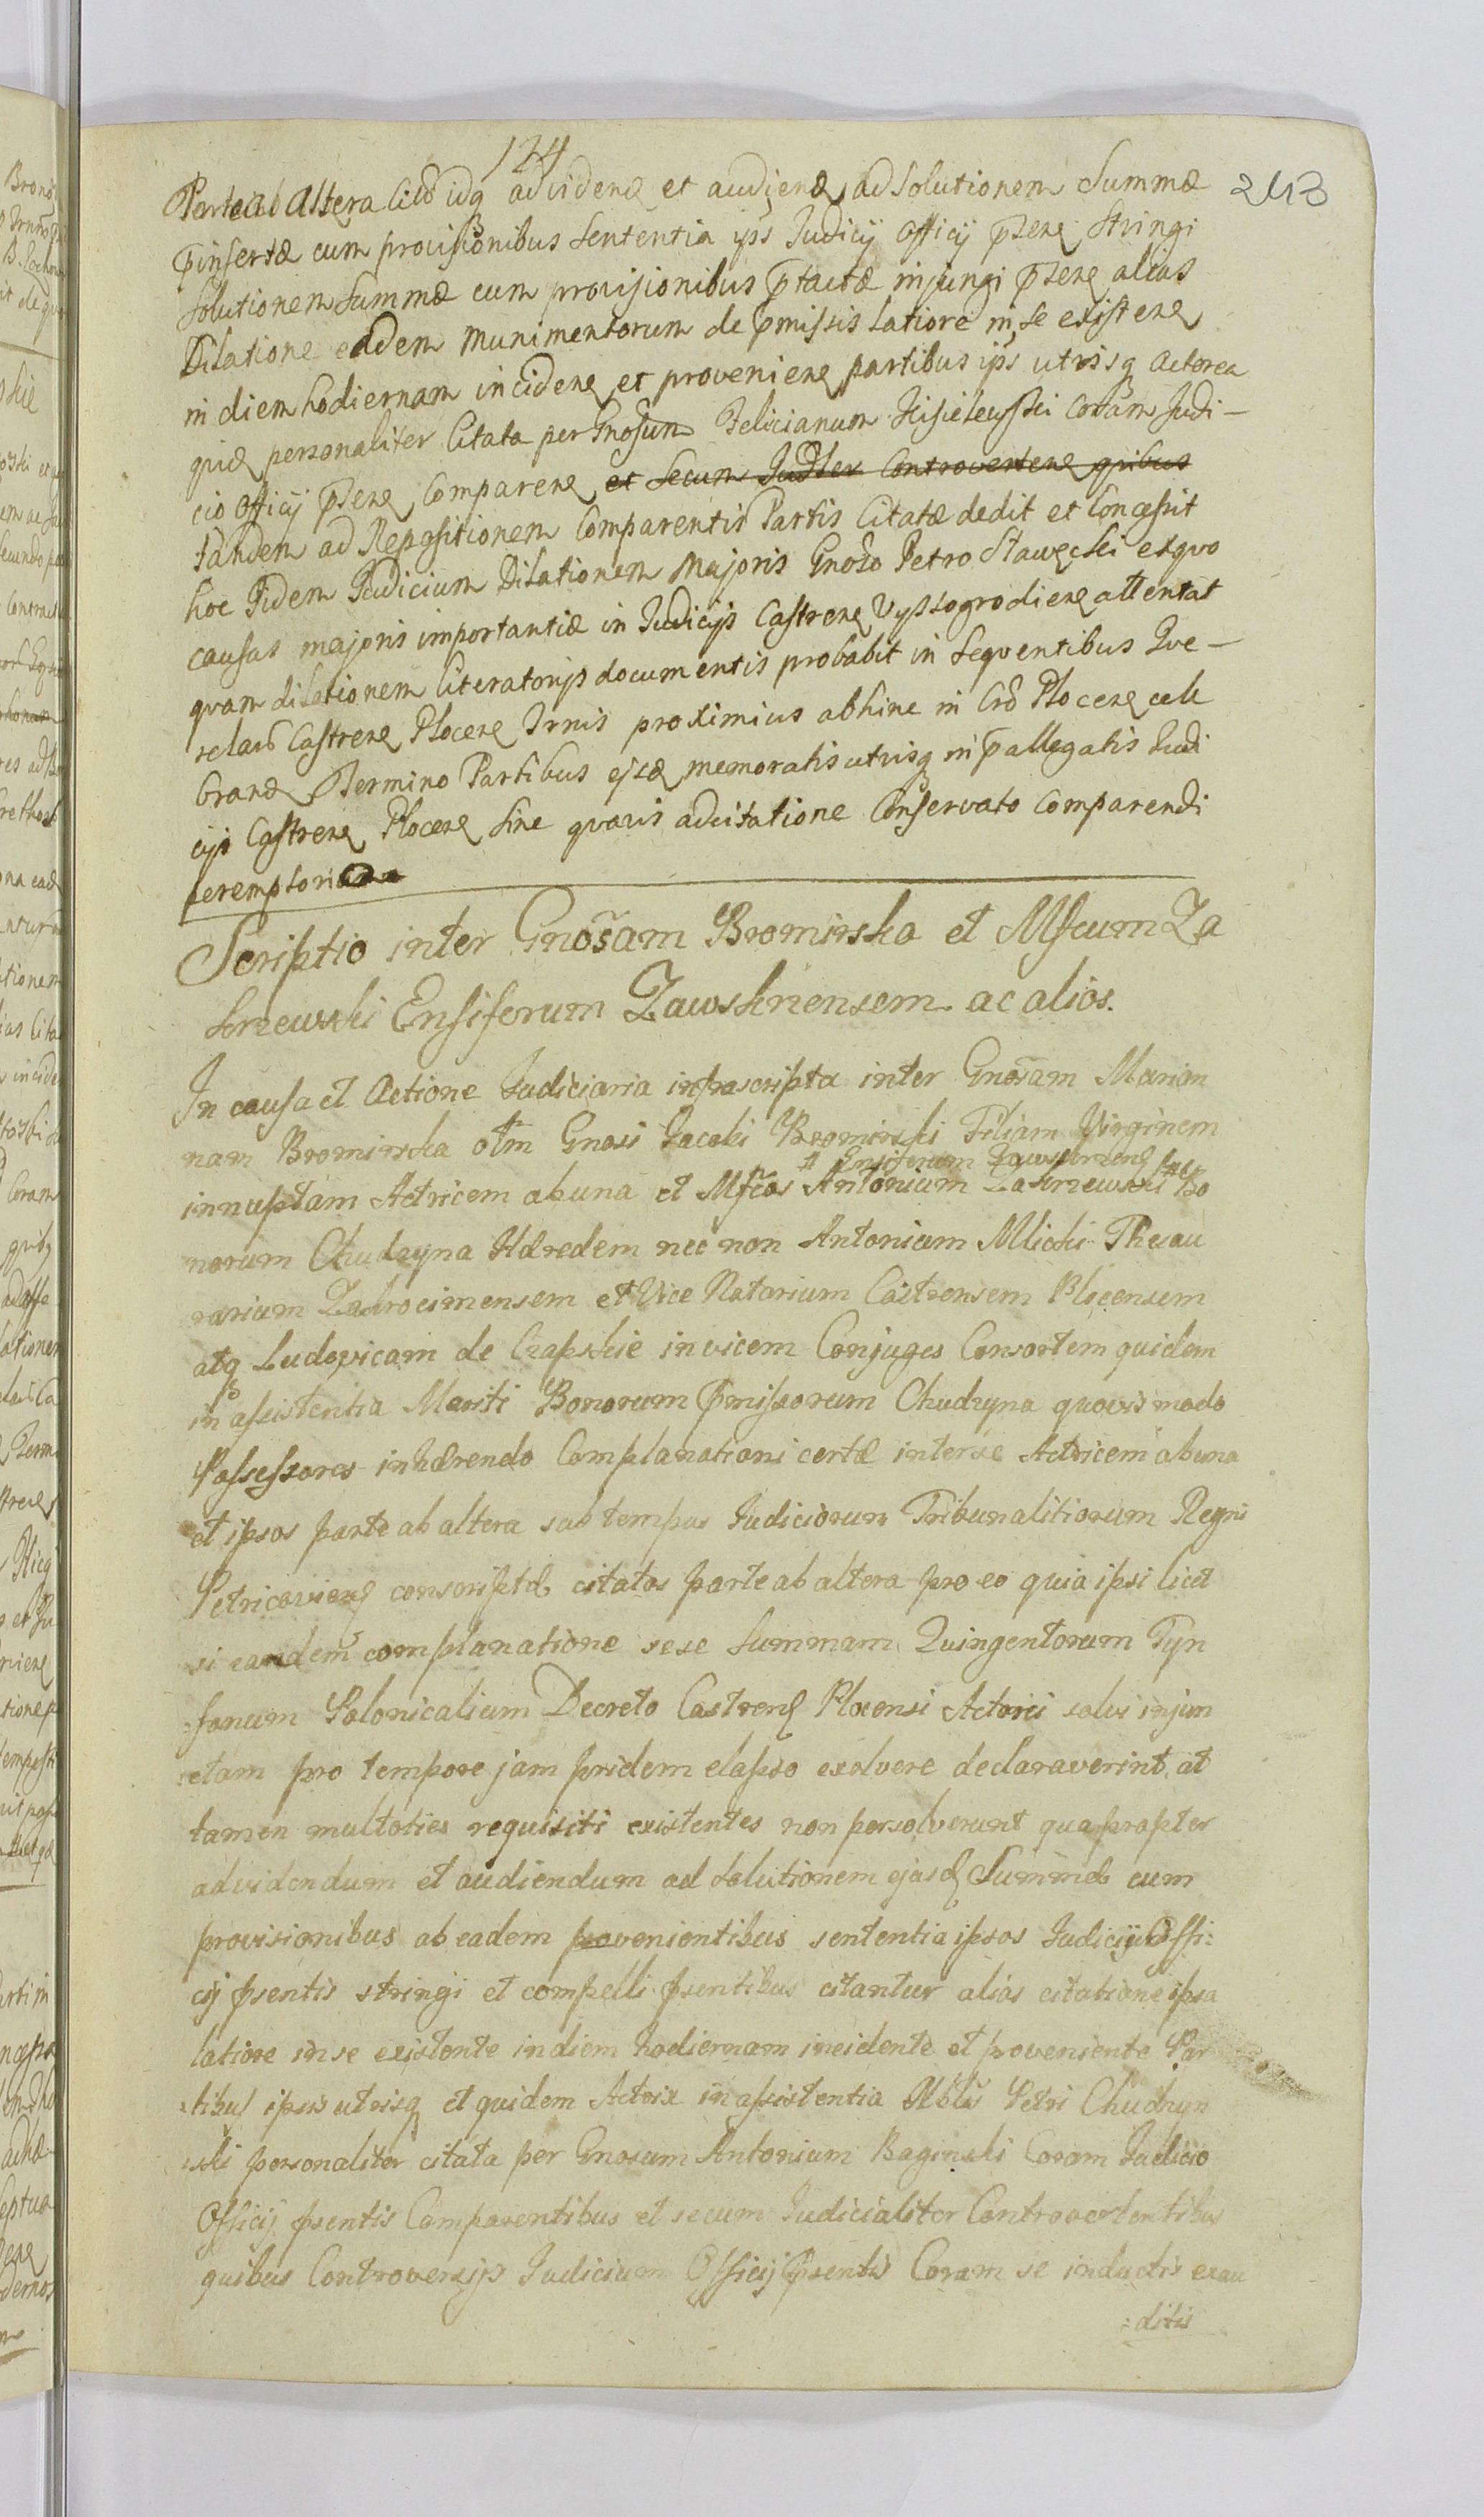 124
243
Parte ab Altera Citõ idq advidend et audiend ad Solutionem Summæ
p̃insertæ cum provisionibus Sententia ips Judicij Officij p̃sens Stringi
Solutionem Summæ cum provisionibus p̃tactæ injungi p̃sens alias
Dilatione eadem Munimentorum de p̃missis latiore in se existens
in diem hodiernam incidens et proveniens partibus ips utrisq Actorea
quid personaliter Citata per Gnosum Felicianum Kisielewski Coram Judi-
cio Officij p̃sens Comparens et Secum Judler Controvertens quibus
tandem ad Repositionem Comparentis Partis Citatæ dedit et Concessit
hoc Idem Judicium Dilationem Majoris Gnoso Petro Sławęcki exquo
causas majoris importantiæ in Judicijs Castrens Vyssogrodiens attentat
quam dilationem literatorijs documentis probabit in Sequentibus Que-
relarũ Castrens Plocens Trnis proximius abhinc in Crõ Plocens cele
brand Termino Partibus ejsd memoratis utrisq in p̃allegatis Judi
cijs Castrens Plocens Sine quavis adcitatione Conservato Comparendi
peremptorie
Scriptio inter Gnosam Bromirska et Mfcum Za
krzewski Ensiferum Zawskrzensem ac alios.
In causa et Actione Judiciaria infrascripta inter Gnosam Marian
nam Bromirska olm Gnosi Jacobi Bromirski Filiam Virginem
# Ensiferum Zawskrzens
innuptam Actricem ab una et Mfcos Antonium Zakrzewski Bo
norum Chudzyna Hæredem nec non Antonium Mlicki Thesau
rarium Zakrocimensem et Vice Notarium Castrensem Plocensem
atq Ludovicam de Czapskie invicem Conjuges Consortem quidem
in assistentia Mariti Bonorum p̃missorum Chudzyna quovis modo
Possessores inhærendo Complanationi certæ inter se Actricem ab una
et ipsos parte ab altera sub tempus Judiciorum Tribunalitiorum Regni
Petricoviens conscriptæ citatos parte ab altera pro eo quia ipsi licet
si eandem complanatione sese Summam Quingentorum Tyn
fonum Polonicalium Decreto Castrens Plocensi Actorici solvi injun
ctam pro tempore jam pridem elapso exolvere declaraverint, at
tamen multoties requisiti existentes non persolverunt quapropter
advidendum et audiendum ad Solutionem ejusd Summæ cum
provisionibus ab eadem provenientibus sententia ipsos Judicij Offi:
cij p̃sentis stringi et compelli p̃sentibus citantur alias citatione ipsa
latiore in se existente indiem hodiernam incidente et proveniente Par
tibus ipsis utrisq et quidem Actrix in assistentia Nblis Petri Chudzyn
ski personaliter citata per Gnosum Antonium Baginski Coram Judicio
Officij p̃sentis Comparentibus et secum Judicialiter Controvertentibus
quibus Controversijs Judicium Officij p̃sentis Coram se inductis exau
:ditis